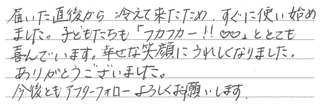 届いた直後から冷えて来たため、すぐに使い始め
ました。子どもたちも「フカフカー!!♡♡」ととても
喜んでいます。幸せな笑顔にうれしくなりました。
ありがとうございました。
今後ともアフターフォローよろしくお願いします。